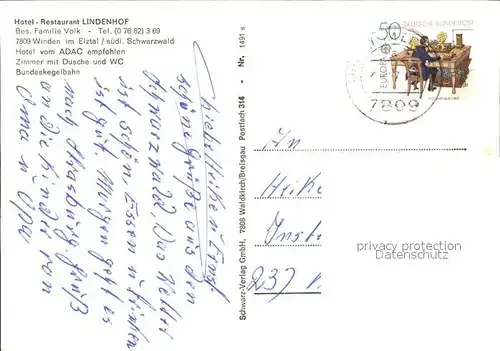 Hotel - Restaurant LINDENHOF
Bes. Familie Volk - Tel. (0 76 82) 3 69
7809 Winden im Elztal / südl. Schwarzwald
Hotel vom ADAC empfohlen
Zimmer mit Dusche und WC
Bundeskegelbahn
Liebe Heike u.
schöne Grüße aus dem
Schwarzwald, Das Wetter
ist schön, Essen u. trinken
ist gut. Morgen geht es
nach Strasburg Gruß
an Die Kinder von
Oma u. Opa
Schwarz-Verlag GmbH, 7808 Waldkirch/Breisgau Postfach 314 - Nr. 1491 s
50
DEUTSCHE BUNDESPOST
EUROPA
7809
An
Heike
Inst
237
privacy protection
Datenschutz